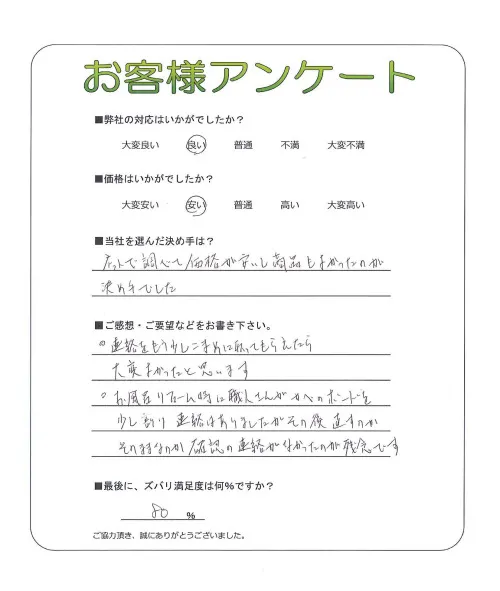 お客様アンケート
■弊社の対応はいかがでしたか？
大変良い 良い 普通 不満 大変不満
■価格はいかがでしたか？
大変安い 安い 普通 高い 大変高い
■当社を選んだ決め手は？
ネットで調べて価格が安いし商品もよかったのが
決め手でした
■ご感想・ご要望などをお書き下さい。
○連絡をもう少しこまめに取ってもらえたら
大変よかったと思います
○お風呂リフォーム時に職人さんがカベのボードを
少し割り連絡はありましたがその後直すのか
そのままなのか確認の連絡がなかったのが残念です
■最後に、ズバリ満足度は何%ですか？
80 %
ご協力頂き、誠にありがとうございました。